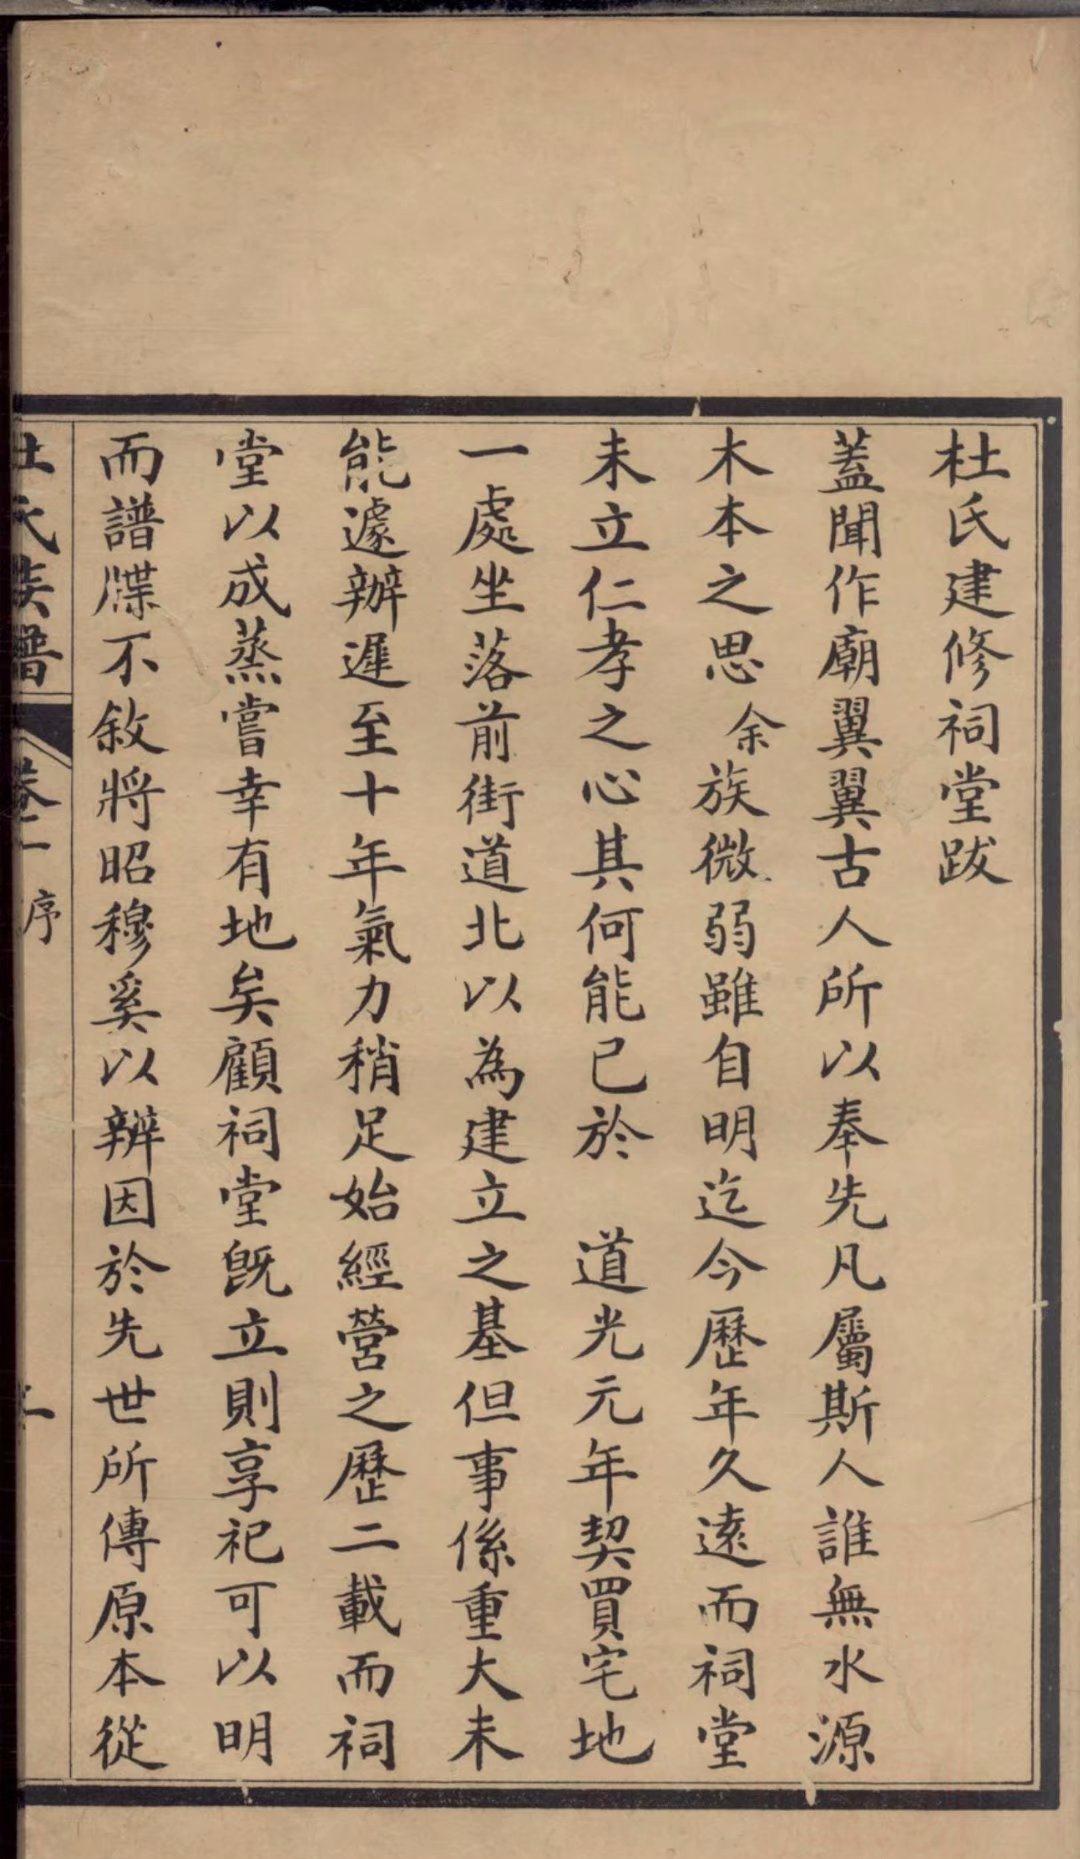 杜氏建修祠堂跋
蓋聞作廟翼翼古人所以奉先凡屬斯人誰無水源
木本之思余族微弱雖自明迄今歷年久遠而祠堂
未立仁孝之心其何能已於　道光元年契買宅地
一處坐落前街道北以為建立之基但事係重大未
能遽辦遲至十年氣力稍足始經營之歷二載而祠
堂以成蒸嘗幸有地矣顧祠堂既立則享祀可以明
而譜牒不敘將昭穆奚以辨因於先世所傳原本從
杜氏族譜　卷一　序